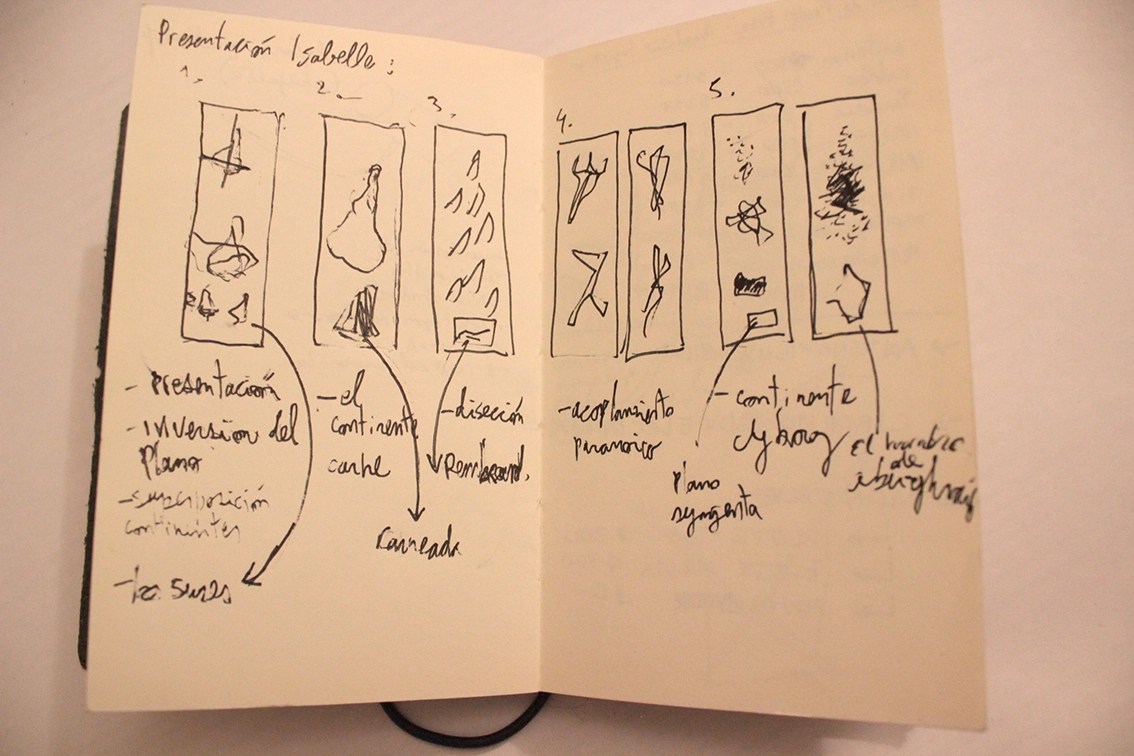 Presentación Isabelle:
1.
2.
3.
4.
5.
- Presentación
- inversión del
Plano
- superposición
continentes
- los sures
- el
continente
carne
carneada
- diseción
Rembrand.
- acoplamiento
paranoico
- continente
cyborg
plano
syngenta
el hombre
de